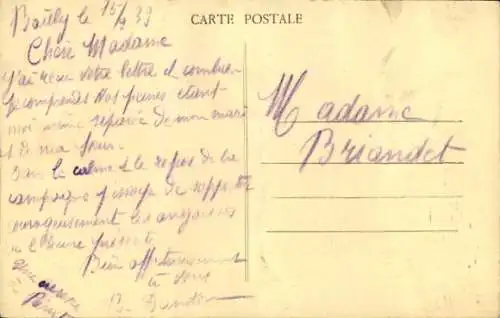 CARTE POSTALE
le 15/9 39
Chère Madame
J'ai reçu votre lettre et combien
je comprends vos peines étant
moi même separée de mon mari
et de ma sœur.
Dans le calme et le repos de la
campagne j'essaye de supporter
courageusement les angoisses
de l'heure présente
Bien affectueusement
à vous
Madame
Briandet